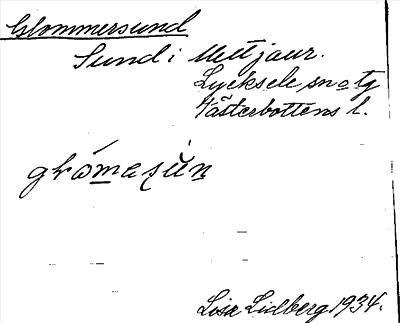 Glommersund
Sund i Mettjaur.
Lycksele sn o tg
Västerbottens l.
Lisa Lidberg 1934.